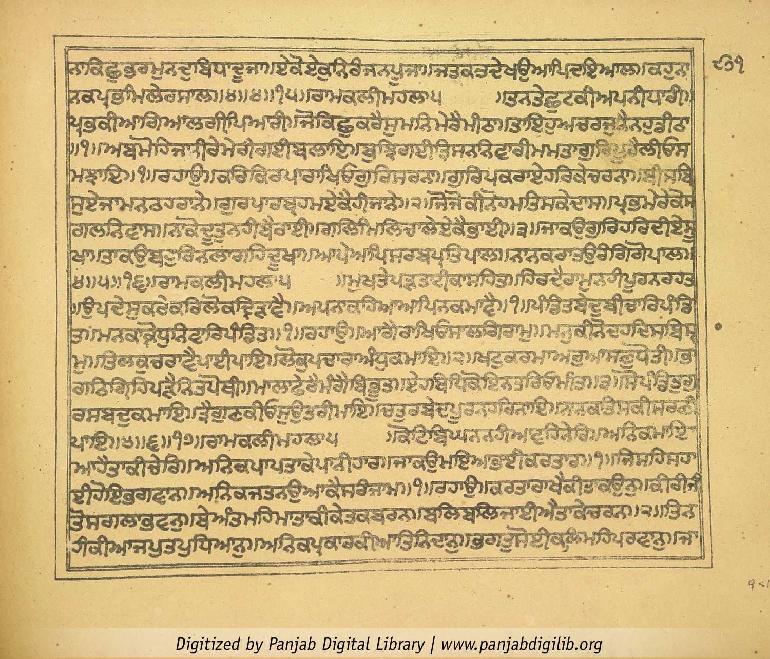 ਨਾਕਿਛੁਭਰਮੁਨਦੁਬਿਧਾਦੂਜਾ॥ਏਕੋਏਕੁਨਿਰੰਜਨਪੂਜਾ॥ਜਤਕਤਦੇਖਉਆਪਿਦਇਆਲ॥ਕਹੁਨਾ ੮੩੧
ਨਕਪ੍ਰਭਮਿਲੇਰਸਾਲ॥੪॥੪॥੧੫॥ਰਾਮਕਲੀਮਹਲਾ੫ ॥ਤਨਤੇਛੁਟਕੀਅਪਨੀਧਾਰੀ॥
ਪ੍ਰਭਕੀਆਗਿਆਲਗੀਪਿਆਰੀ॥ਜੋਕਿਛੁਕਰੈਸੁਮਨਿਮੇਰੈਮੀਠਾ॥ਤਾਇਹੁਅਚਰਜੁਨੈਨਹੁਡੀਠਾ
॥੧॥ਅਬਮੋਹਿਜਾਨੀਰੇਮੇਰੀਗਈਬਲਾਇ॥ਬੁਝਿਗਈਤ੍ਰਿਸਨਨਿਵਾਰੀਮਮਤਾਗੁਰਿਪੂਰੈਲੀਓਸ
ਮਝਾਇ॥੧॥ਰਹਾਉ॥ਕਰਿਕਿਰਪਾਰਾਖਿਓਗੁਰਿਸਰਨਾ॥ਗੁਰਿਪਕਰਾਏਹਰਿਕੇਚਰਨਾ॥ਬੀਸਬਿ
ਸੁਏਜਾਮਨਠਹਰਾਨੇ॥ਗੁਰਪਾਰਬ੍ਰਹਮਏਕੈਹੀਜਾਨੇ॥੨॥ਜੋਜੋਕੀਨੋਹਮਤਿਸਕੇਦਾਸ॥ਪ੍ਰਭਮੇਰੇਕੋਸ
ਗਲਨਿਵਾਸ॥ਨਾਕੋਦੂਤੁਨਹੀਬੈਰਾਈ॥ਗਲਿਮਿਲਿਚਾਲੇਏਕੈਭਾਈ॥੩॥ਜਾਕਉਗੁਰਿਹਰਿਦੀਏਸੂ
ਖਾ॥ਤਾਕਉਬਹੁਰਿਨਲਾਗਹਿਦੂਖਾ॥ਆਪੇਆਪਿਸਰਬਪ੍ਰਤਿਪਾਲ॥ਨਾਨਕਰਾਤਉਰੰਗਿਗੋਪਾਲ॥
੪॥੫॥੧੬॥ਰਾਮਕਲੀਮਹਲਾ੫ ॥ਮੁਖਤੇਪੜਤਾਟੀਕਾਸਹਿਤ॥ਹਿਰਦੈਰਾਮੁਨਹੀਪੂਰਨਰਹਤ
॥ਉਪਦੇਸੁਕਰੇਕਰਿਲੋਕਦ੍ਰਿੜਾਵੈ॥ਅਪਨਾਕਹਿਆਆਪਿਨਕਮਾਵੈ॥੧॥ਪੰਡਿਤਬੇਦੁਬੀਚਾਰਿਪੰਡਿ
ਤ॥ਮਨਕਾਕ੍ਰੋਧੁਨਿਵਾਰਿਪੰਡਿਤ॥੧॥ਰਹਾਉ॥ਆਗੈਰਾਖਿਓਸਾਲਗਿਰਾਮੁ॥ਮਨੁਕੀਨੋਦਹਦਿਸਬਿਸ੍ਰਾ
ਮੁ॥ਤਿਲਕੁਚਰਾਵੈਪਾਈਪਾਇ॥ਲੋਕਪਚਾਰਾਅੰਧੁਕਮਾਇ॥੨॥ਖਟੁਕਰਮਾਅਰੁਆਸਣੁਧੋਤੀ॥ਭਾ
ਗਠਿਗ੍ਰਿਹਿਪੜੈਨਿਤਪੋਥੀ॥ਮਾਲਾਫੇਰੈਮੰਗੈਬਿਭੂਤ॥ਇਹਬਿਧਿਕੋਇਨਤਰਿਓਮੀਤ॥੩॥ਸੋਪੰਡਿਤੁਗੁ
ਰਸਬਦੁਕਮਾਇ॥ਤ੍ਰੈਗੁਣਕੀਓਸੁਉਤਰੀਮਾਇ॥ਚਤੁਰਬੇਦਪੂਰਨਹਰਿਨਾਇ॥ਨਾਨਕਤਿਸਕੀਸਰਣੀ
ਪਾਇ॥੪॥੬॥੧੭॥ਰਾਮਕਲੀਮਹਲਾ੫ ॥ਕੋਟਿਬਿਘਨਨਹੀਆਵਹਿਨੇਰਿ॥ਅਨਿਕਮਾਇ
ਆਹੈਤਾਕੀਚੇਰਿ॥ਅਨਿਕਪਾਪਤਾਕੇਪਾਨੀਹਾਰ॥ਜਾਕਉਮਇਆਭਈਕਰਤਾਰ॥੧॥ਜਿਸਹਿਸਹਾ
ਈਹੋਇਭਗਵਾਨ॥ਅਨਿਕਜਤਨਉਆਕੈਸਰੰਜਾਮ॥੧॥ਰਹਾਉ॥ਕਰਤਾਰਾਖੈਕੀਤਾਕਉਨੁ॥ਕੀਰੀਜੀ
ਤੋਸਗਲਾਭਵਨੁ॥ਬੇਅੰਤਮਹਿਮਾਤਾਕੀਕੇਤਕਬਰਨ॥ਬਲਿਬਲਿਜਾਈਐਤਾਕੇਚਰਨ॥੨॥ਤਿਨ
ਹੀਕੀਆਜਪੁਤਪੁਧਿਆਨੁ॥ਅਨਿਕਪ੍ਰਕਾਰਕੀਆਤਿਨਿਦਾਨੁ॥ਭਗਤੁਸੋਈਕਲਿਮਹਿਪਰਵਾਨੁ॥ਜਾ
Digitized by Panjab Digital Library | www.panjabdigilib.org